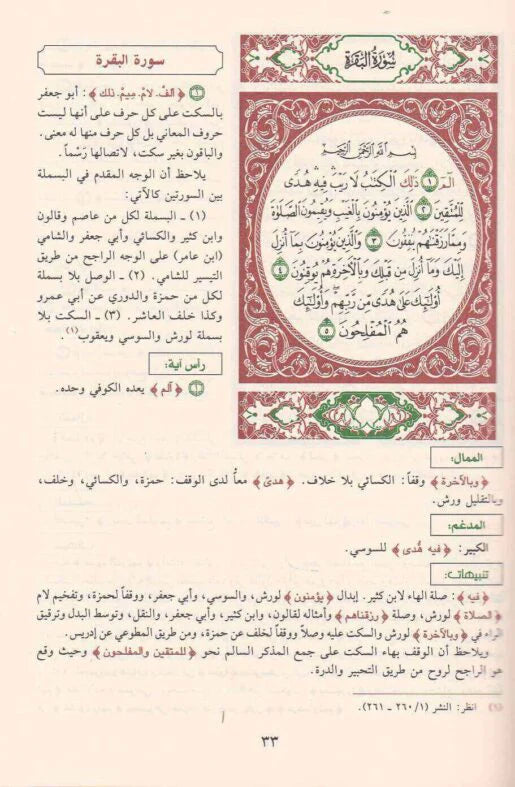 سورة البقرة
﴿ألفْ. لامْ. مِيمْ. ذلك﴾: أبو جعفر
بالسكت على كل حرف على أنها ليست
حروف المعاني بل كل حرف منها له معنى.
والباقون بغير سكت، لاتصالها رَسْماً.
يلاحظ أن الوجه المقدم في البسملة
بين السورتين كالآتي:
(١) ـ البسملة لكل من عاصم وقالون
وابن كثير والكسائي وأبي جعفر والشامي
(ابن عامر) على الوجه الراجح من طريق
التيسير للشامي. (٢) ـ الوصل بلا بسملة
لكل من حمزة والدوري عن أبي عمرو
وكذا خلف العاشر. (٣) ـ السكت بلا
بسملة لورش والسوسي ويعقوب(١).
رأس آية:
١ ﴿الم﴾ يعده الكوفي وحده.
سُورَةُ البَقَرَةِ
بِسْمِ اللَّهِ الرَّحْمَٰنِ الرَّحِيمِ
الٓمٓ ١ ذَٰلِكَ الْكِتَٰبُ لَا رَيْبَ فِيهِ هُدًى
لِّلْمُتَّقِينَ ٢ الَّذِينَ يُؤْمِنُونَ بِالْغَيْبِ وَيُقِيمُونَ الصَّلَوٰةَ
وَمِمَّا رَزَقْنَٰهُمْ يُنفِقُونَ ٣ وَالَّذِينَ يُؤْمِنُونَ بِمَآ أُنزِلَ
إِلَيْكَ وَمَآ أُنزِلَ مِن قَبْلِكَ وَبِالْآخِرَةِ هُمْ يُوقِنُونَ ٤
أُوْلَٰٓئِكَ عَلَىٰ هُدًى مِّن رَّبِّهِمْ وَأُوْلَٰٓئِكَ
هُمُ الْمُفْلِحُونَ ٥
الممال:
﴿وبالآخرة﴾ وقفاً: الكسائي بلا خلاف. ﴿هدىً﴾ معاً لدى الوقف: حمزة، والكسائي، وخلف،
وبالتقليل ورش.
المدغم:
الكبير: ﴿فيه هُدى﴾ للسوسي.
تنبيهات:
﴿فيه﴾: صلة الهاء لابن كثير. إبدال ﴿يؤمنون﴾ لورش، والسوسي، وأبي جعفر، ووقفاً لحمزة، وتفخيم لام
﴿الصلاة﴾ لورش، وصلة ﴿رزقناهم﴾ وأمثاله لقالون، وابن كثير، وأبي جعفر، والنقل، وتوسط البدل وترقيق
الراء في ﴿وبالآخرة﴾ لورش والسكت عليه وصلاً ووقفاً لخلف عن حمزة، ومن طريق المطوعي عن إدريس.
ويلاحظ أن الوقف بهاء السكت على جمع المذكر السالم نحو ﴿للمتقين والمفلحون﴾ وحيث وقع
هو الراجح لروح من طريق التحبير والدرة.
(١) انظر: النشر (٢٦٠/١ ـ ٢٦١).
٣٣